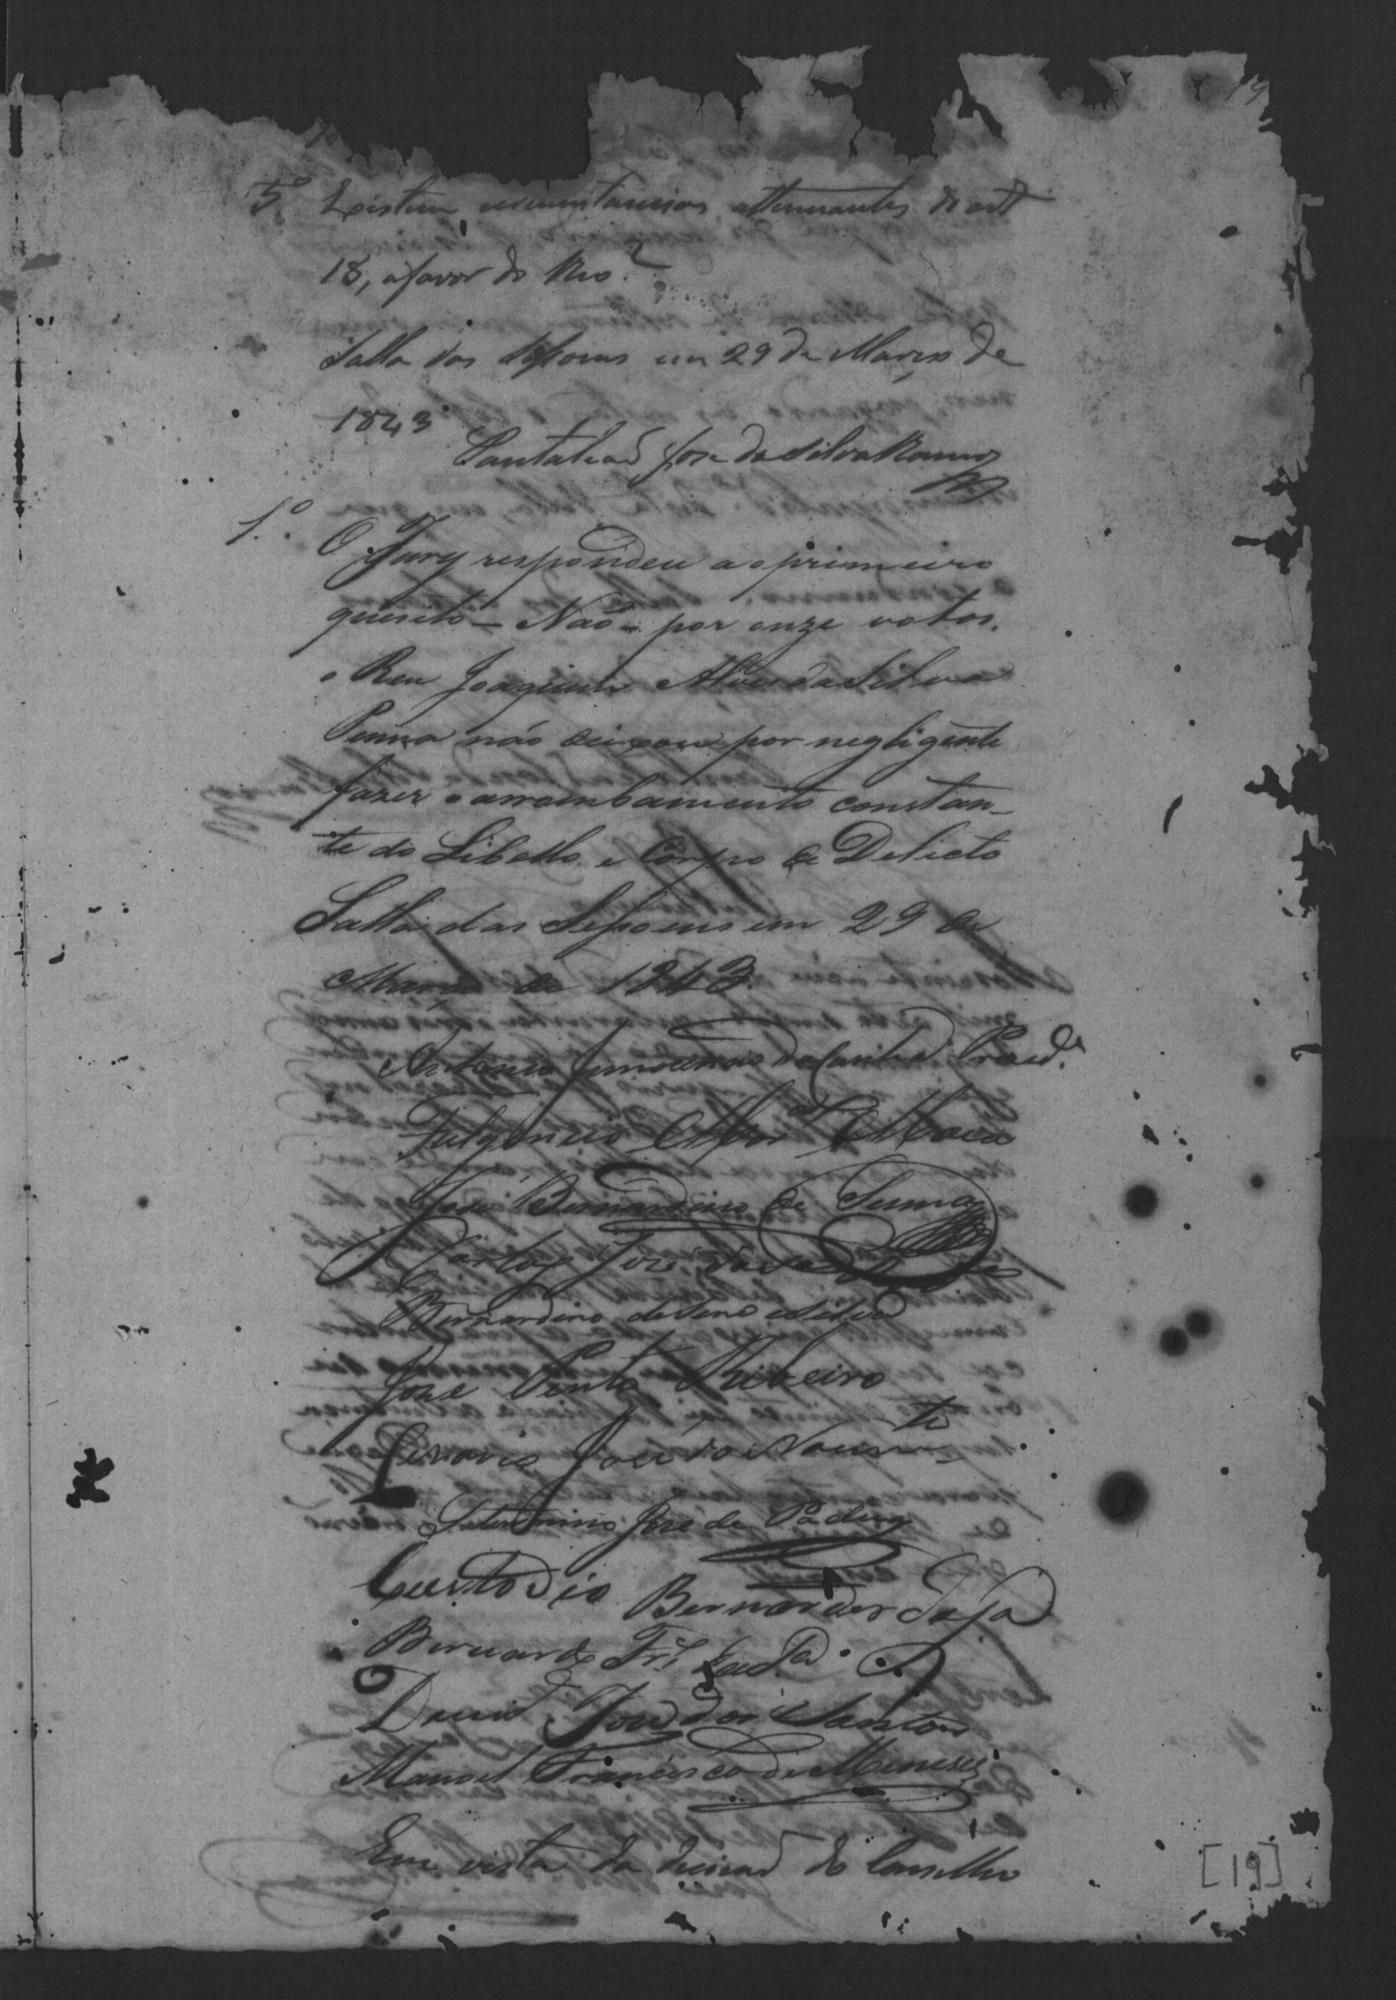 19
5.º Existem circunstancias attenuantes do art
18, a favor do Reo?
Salla das Sessoens em 29 de Março de
1843
Pantaleaõ Jose da Silva Ramos
1.º O Jury respondeu ao primeiro
quesito - Não - por onze votos,
o Reu Joaquim Alves da Silva
Penna não deixou por negligente
fazer o arrombamento constan-
te do Libello e Corpo de Delicto
Salla das Sessoens em 29 de
Março de 1843.
Antonio da Cunha Presid.e
Fulgencio
José Bernardino de Senna
Carlos José da
Bernardino de Sena e
Jose Pinto Ribeiro
José do Nascim.to
Jose de Padua
Custodio Bernardes
Bernardo Fr.
David José dos Santos
Manoel Francisco de Menezes
Em vista da decisaõ do Conselho
[19]